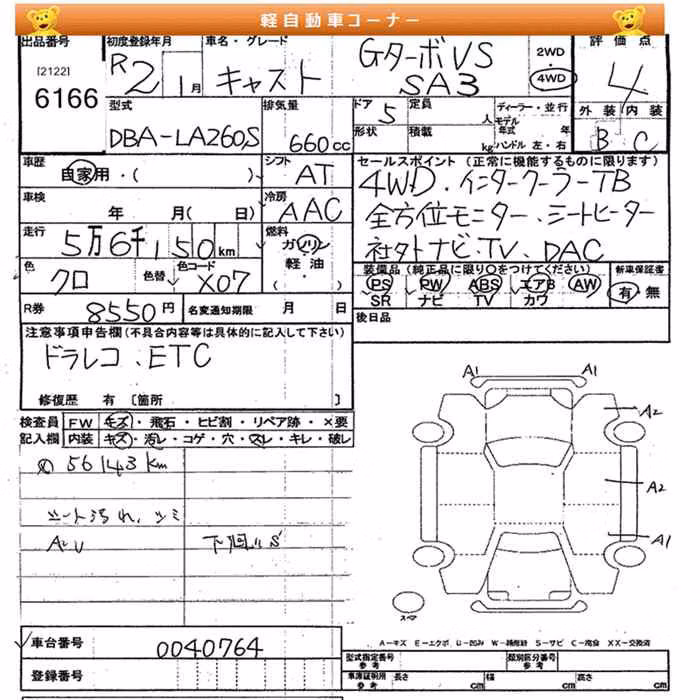 軽自動車コーナー
出品番号 初度登録年月 車名・グレード 2WD 評価点
[2122] R2 1月 キャスト GターボVS
SA3 4WD 4
6166
型式 排気量 ドア 5 定員 人 ディーラー・並行 外装 内装
モデル年式 年
DBA-LA260S 660cc 形状 積載 kg ハンドル 左・右 B C
車歴 シフト セールスポイント (正常に機能するものに限ります)
自家用・( ) AT 4WD.インタークーラーTB
車検 冷房 全方位モニター.シートヒーター
年 月( 日) AAC
走行 燃料 社外ナビ.TV. DAC
5万6千150km ガソリン
軽・油
・( )
色 色替 色コード 装備品 (純正品に限り○をつけてください) 新車保証書
クロ X07 PS PW ABS エアB AW 有・無
SR ナビ TV カワ
R券 8550円 名変通知期限 月 日 後日品
注意事項申告欄(不具合内容等は具体的に記入して下さい)
ドラレコ、ETC
修復歴 有 〔箇所 〕
検査員 FW キズ・飛石・ヒビ割・リペア跡・×要
記入欄 内装 キズ・汚レ・コゲ・穴・スレ・キレ・破レ
56143km
シート汚れ、シミ
下廻りS
A1 A1
A2
A2
A1
スペア
A-キズ E-エクボ U-凹み W-補修跡 S-サビ C-腐食 XX-交換済
車台番号 0040764
型式指定番号 参考 類別区分番号 参考
登録番号 車庫証明用 参考 長さ cm 幅 cm 高さ cm